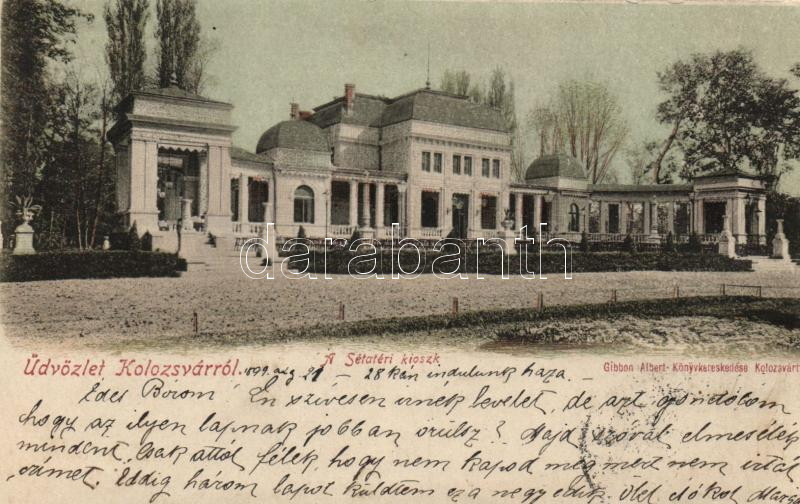 darabanth
Üdvözlet Kolozsvárról.
A Sétatéri kioszk
Gibbon Albert Könyvkereskedése Kolozsvárt
1899 aug 21 – 28 kán indulunk haza. –
Édes Börom! Én szívesen irnék levelet, de azt gondolom
hogy az ilyen lapnak jobban örülsz? Majd szóval elmesélek
mindent, csak attól félek, hogy nem kapod még mert nem irtál
címet. Eddig három lapot küldtem ez a negyedik. Ölel csókol